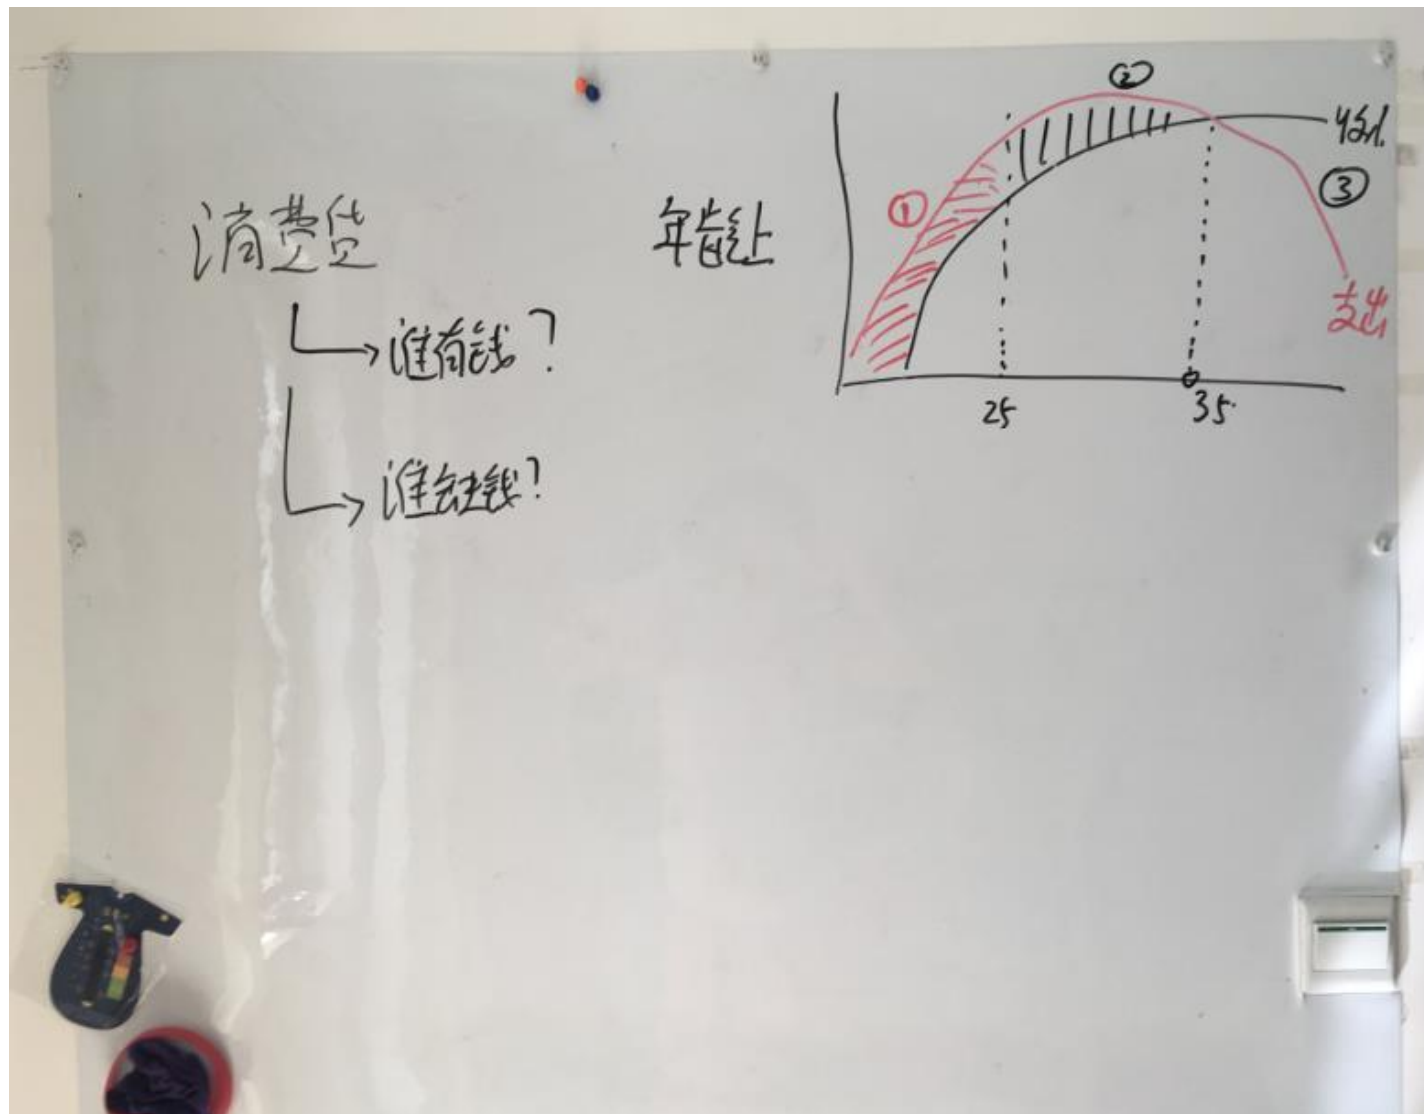 消费贷
谁有钱?
谁缺钱?
年龄上
①
②
收入
③
支出
25
35